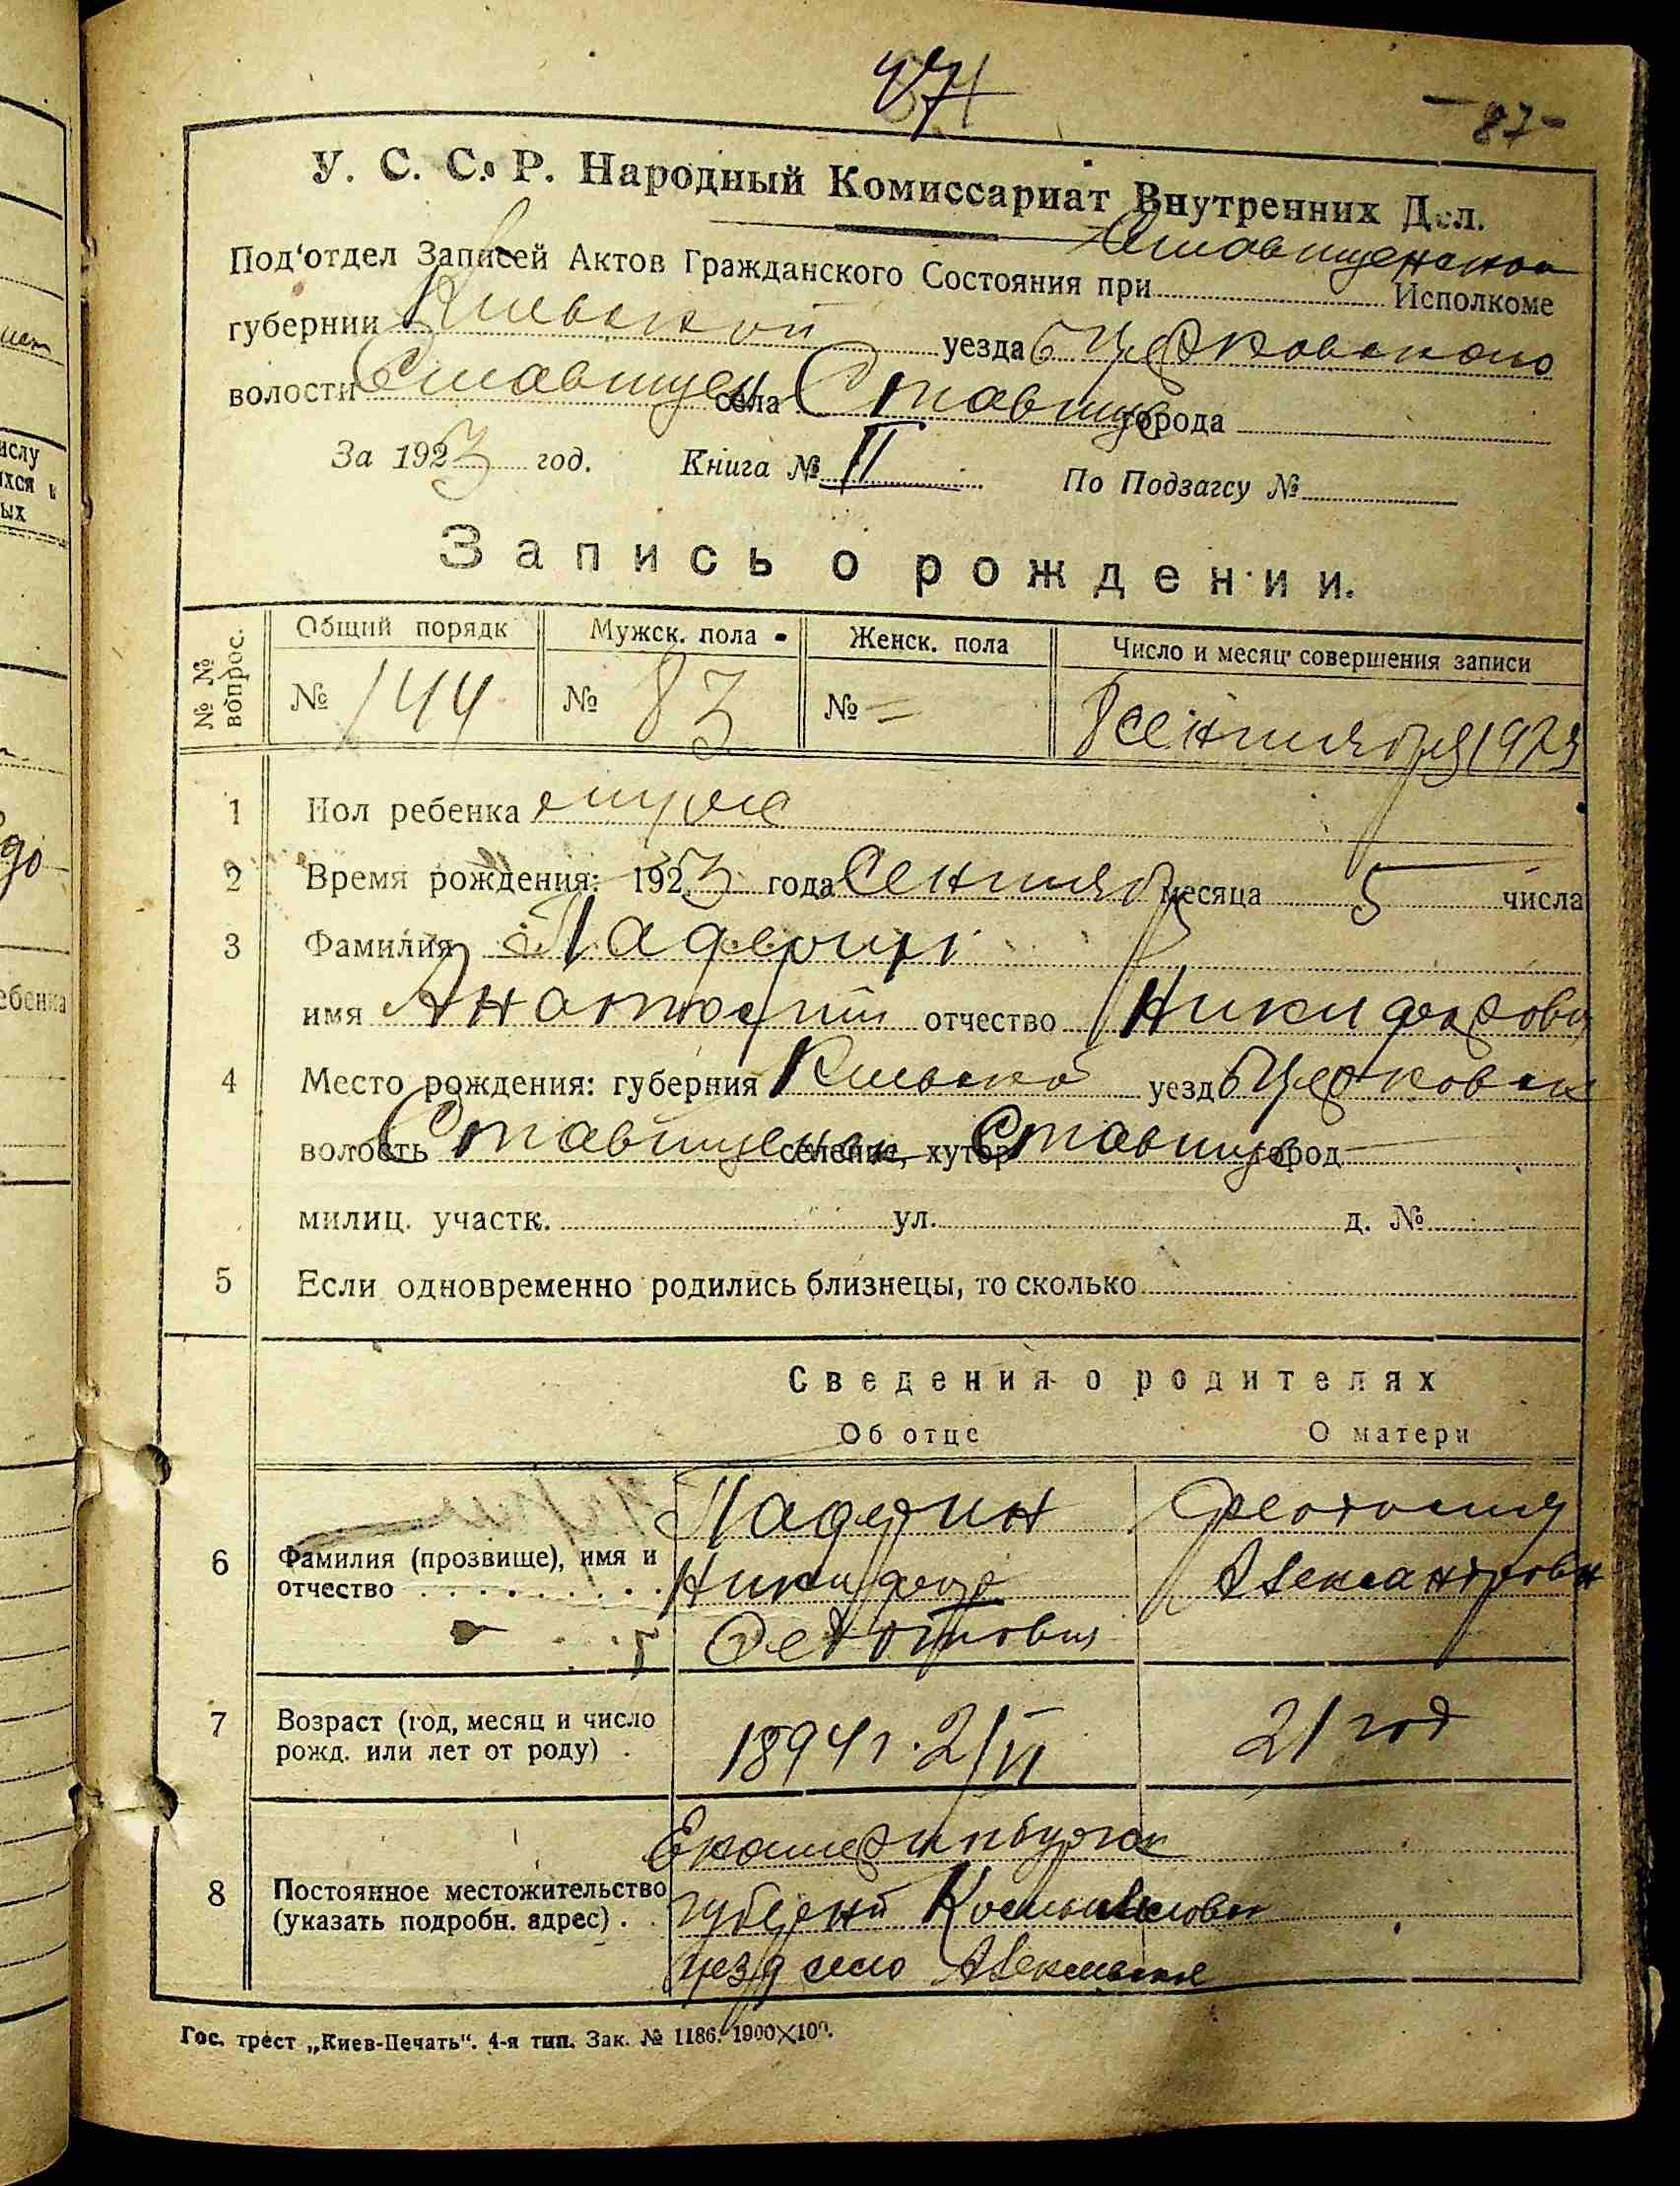 87-
У. С. С. Р. Народный Комиссариат Внутренних Дел.
Под'отдел Записей Актов Гражданского Состояния при Ставищенском Исполкоме
губернии Киевской уезда бЦерковского
волости Ставищен села Ставище города
За 1923 год. Книга № II По Подзагсу №
Запись о рождении.
№ № вопрос. Общий порядк Мужск. пола Женск. пола Число и месяц совершения записи
№ 144 № 83 № = 8 сентября 1923
1 Пол ребенка муж
2 Время рождения: 1923 года Сентяб месяца 5 числа
3 Фамилия Падерин
имя Анатолий отчество Никифорови
4 Место рождения: губерния Киевско уезд бЦерковск
волость Ставищенск селение, хутор Ставище город
милиц. участк. ул. д. №
5 Если одновременно родились близнецы, то сколько
Сведения о родителях
Об отце О матери
Падерин Феодосия
6 Фамилия (прозвище), имя и отчество Никифор Александровн
Федотович
7 Возраст (год, месяц и число рожд. или лет от роду) 1894 г. 2/VI 21 год
Екатеринбургск
8 Постоянное местожительство (указать подробн. адрес) губерни
уезд село
Гос. трест „Киев-Печать“. 4-я тип. Зак. № 1186. 1900×100.